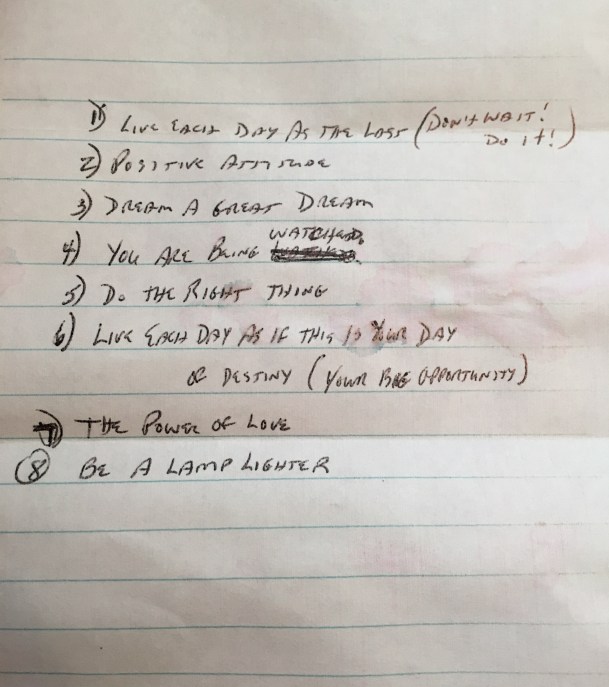 1) LIVE EACH DAY AS THE LAST (DON'T WAIT!
DO IT!)
2) POSITIVE ATTITUDE
3) DREAM A GREAT DREAM
4) YOU ARE BEING WATCHED.
5) DO THE RIGHT THING
6) LIVE EACH DAY AS IF THIS IS YOUR DAY
OF DESTINY (YOUR BIG OPPORTUNITY)
7) THE POWER OF LOVE
8 BE A LAMP LIGHTER